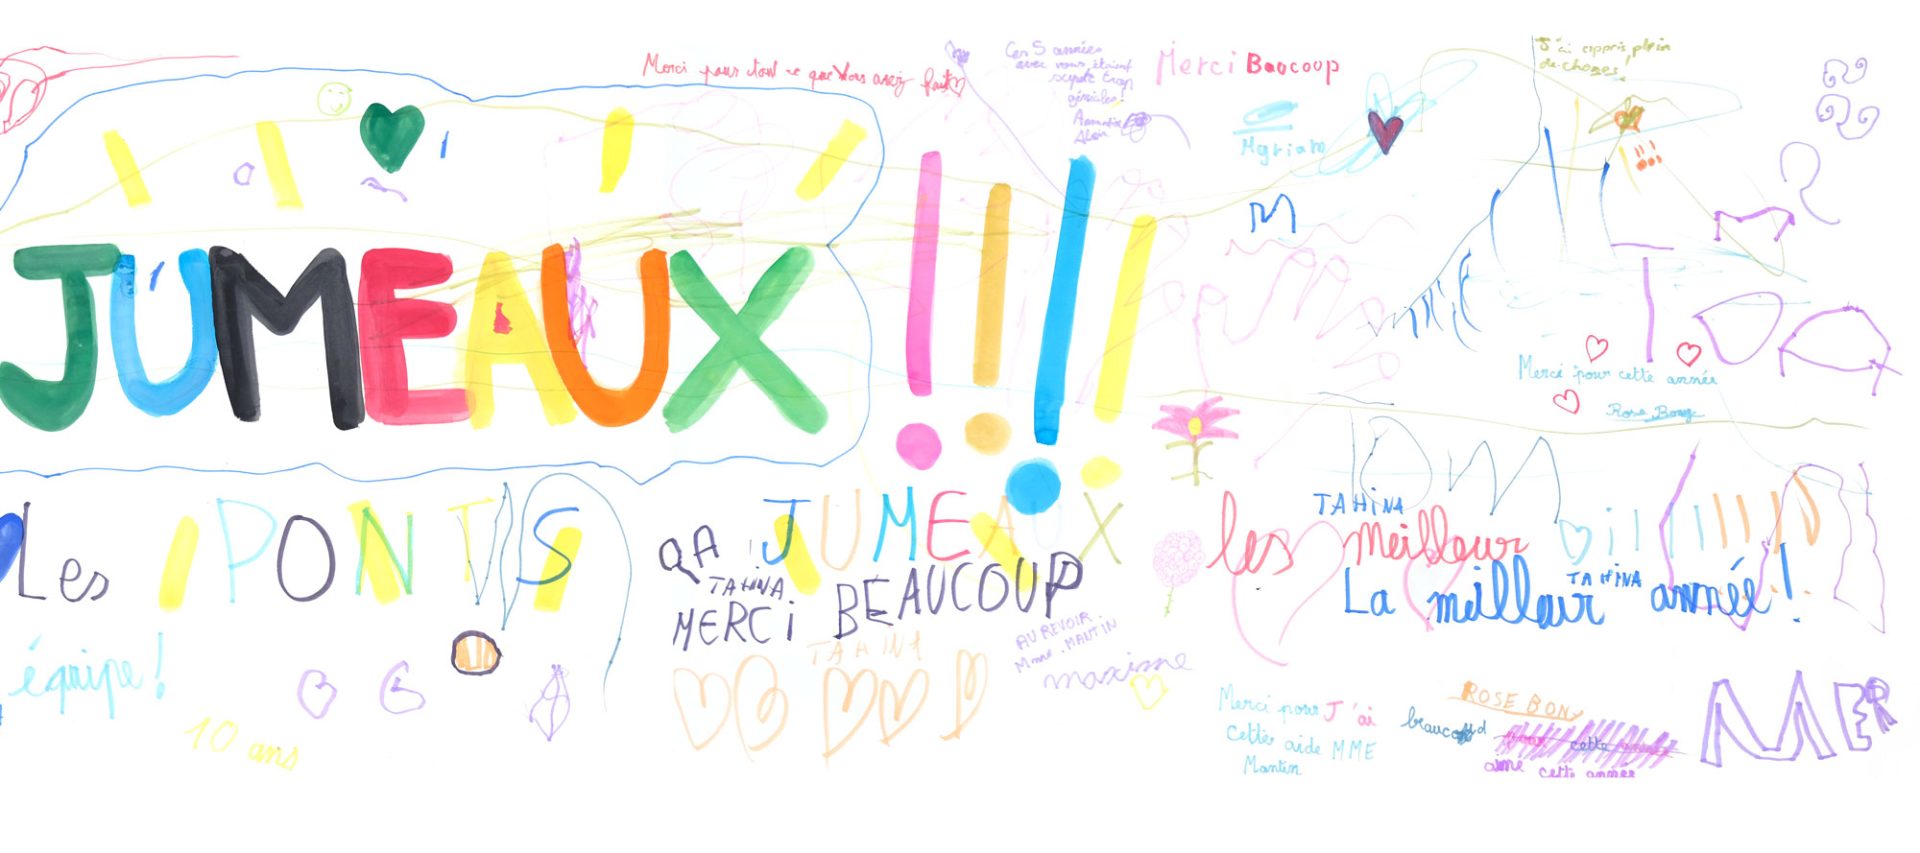 Merci pour tout ce que Vous avez fait
Ces 5 années
avec vous étaient
trop
géniales!
Merci Baucoup
J'ai appris plein
de choses!
Myriam
M
JUMEAUX !!!!
Merci pour cette année
Rose Bony
Les PONTS
JUMEAUX
QA
TAHINA
MERCi BEAUCOUP
TAHINA
AU REVOIR
Mme. MANTIN
maxime
TAHINA
les meilleur
TAHINA
La meilleur année!
équipe!
10 ans
Merci pour
cette aide MME
Mantin
J'ai
beaucoup
aimé cette année
ROSE BONY
MER